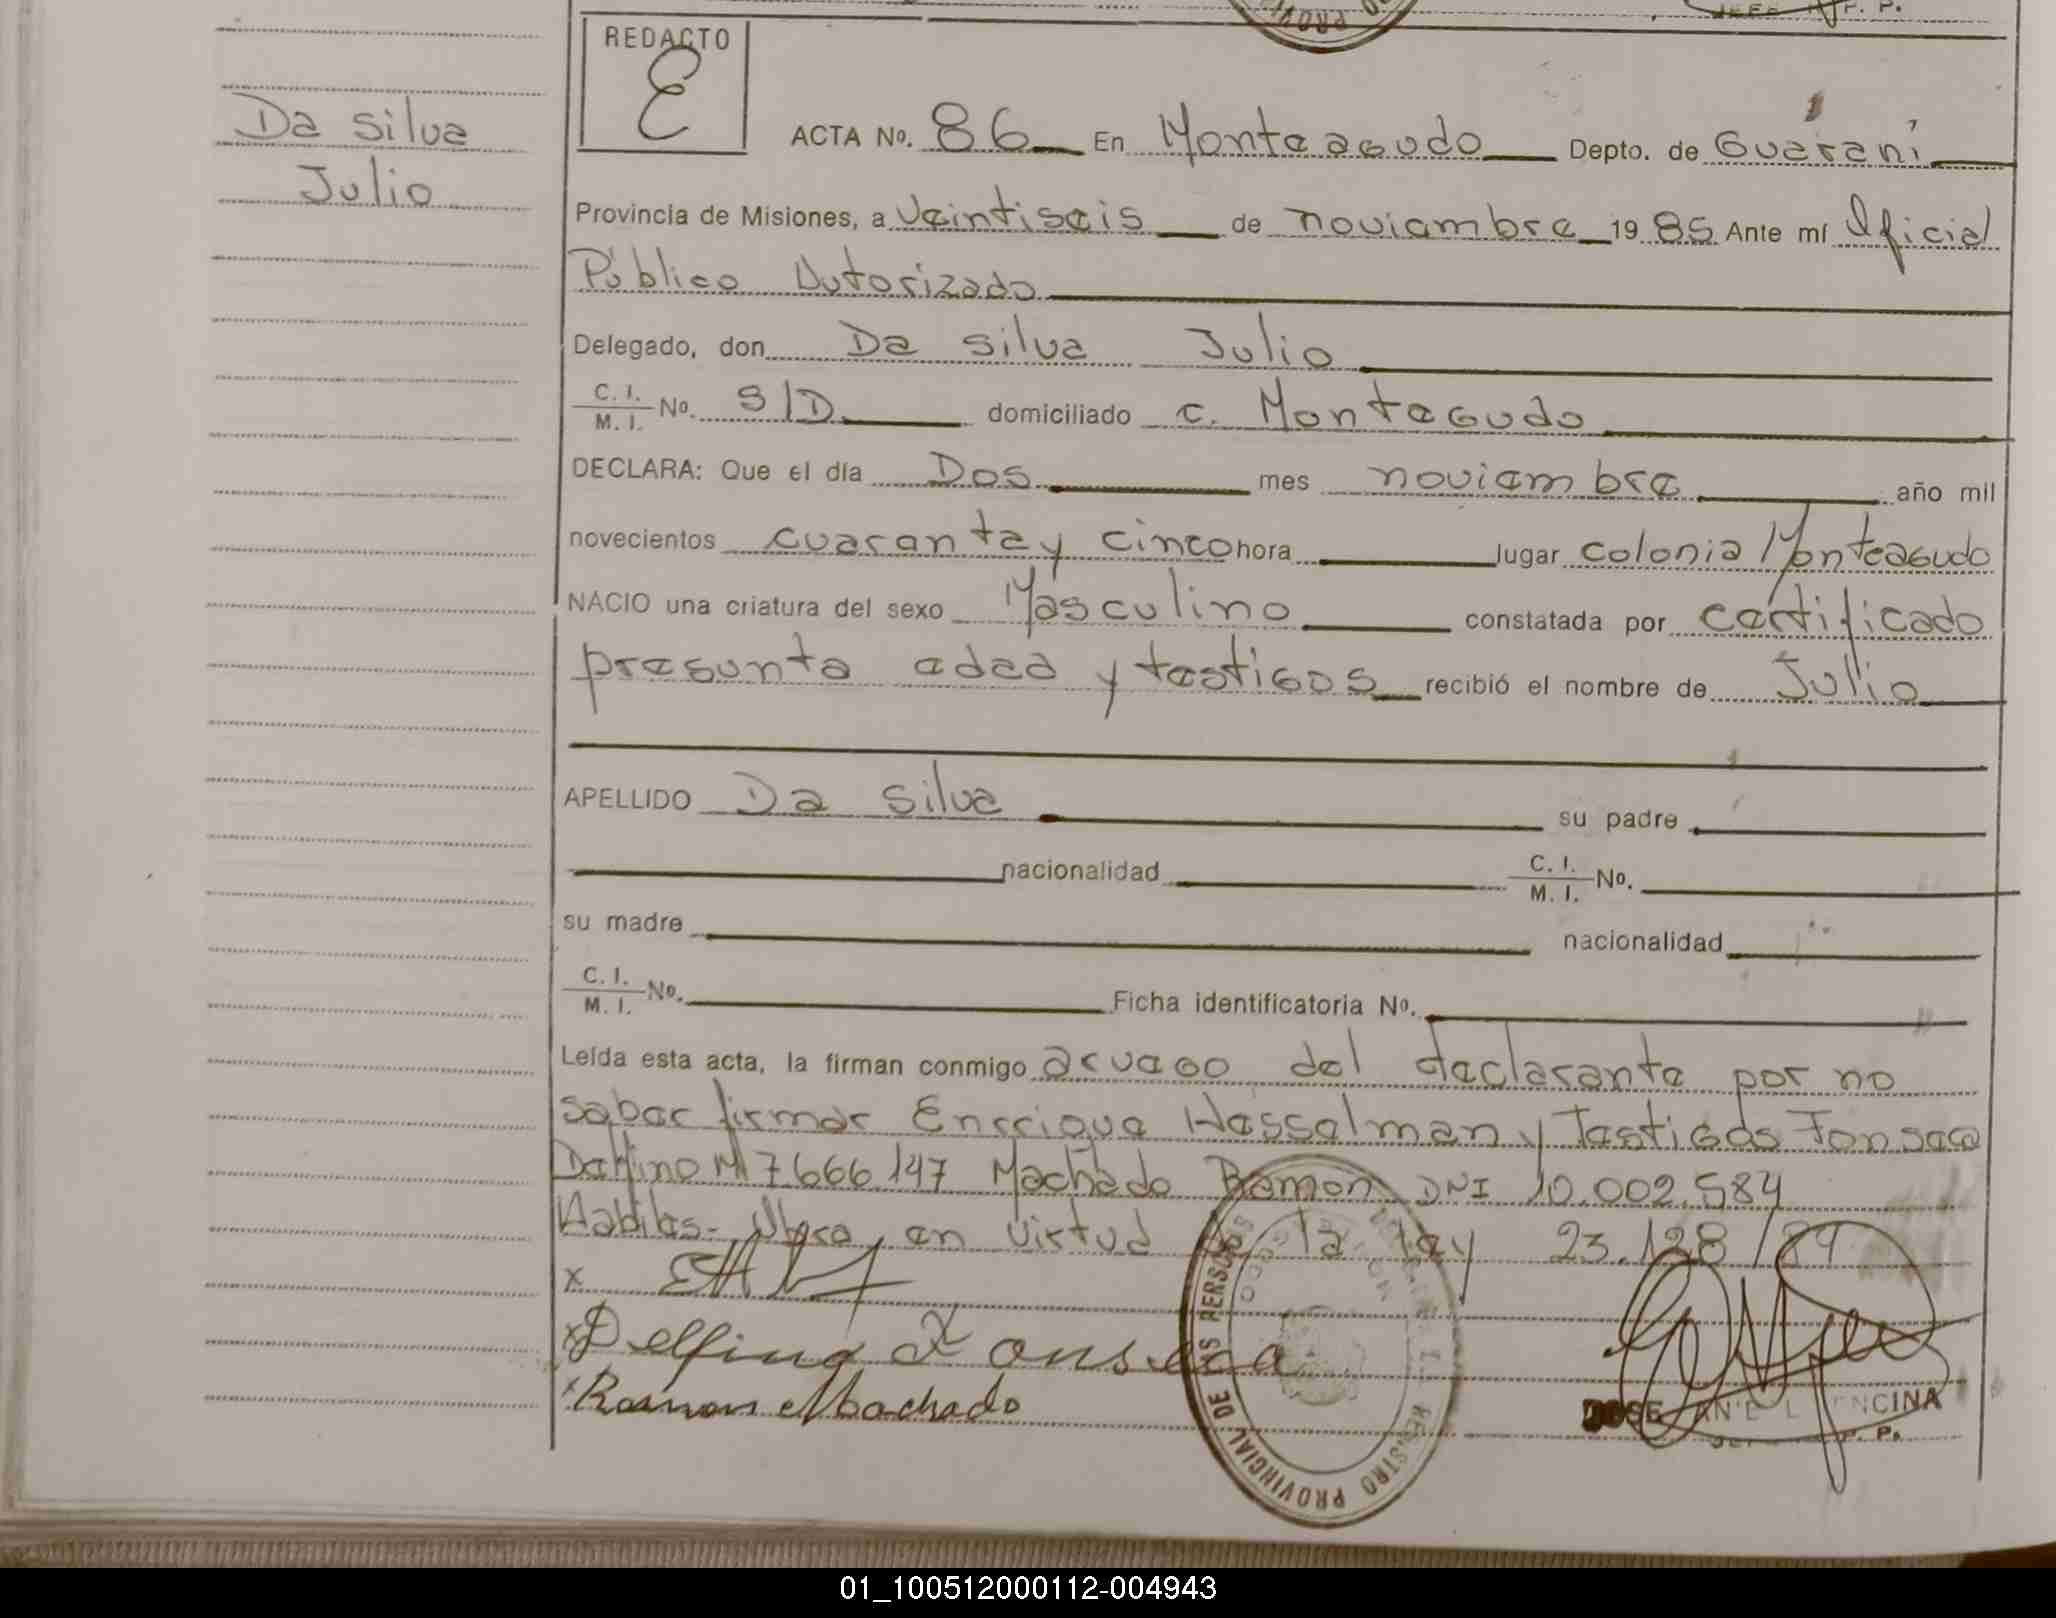 Da Silva
Julio
REDACTO
E
ACTA Nº. 86 En Monteagudo Depto. de Guaraní
Provincia de Misiones, a Veintiseis de noviembre 1985 Ante mí Oficial
Público Autorizado
Delegado, don Da Silva Julio
C. I. / M. I. Nº. S/D domiciliado C. Monteagudo
DECLARA: Que el día Dos mes noviembre año mil
novecientos cuarenta y cinco hora lugar colonia Monteagudo
NACIO una criatura del sexo Masculino constatada por certificado
presunta edad y testigos recibió el nombre de Julio
APELLIDO Da Silva su padre
nacionalidad C. I. / M. I. Nº.
su madre nacionalidad
C. I. / M. I. Nº. Ficha identificatoria Nº.
Leída esta acta, la firman conmigo aruego del declarante por no
saber firmar Enrrique Hesselman y Testigos Fonseca
Delfino MI 7.666.147 Machado Ramon DNI 10.002.584
Habiles - Obra en virtud la ley 23.128/84
x
x Delfino Fonseca
x Ramon Machado
REGISTRO PROVINCIAL DE LAS PERSONAS
JOSE ENCINA
P. P.
01_100512000112-004943